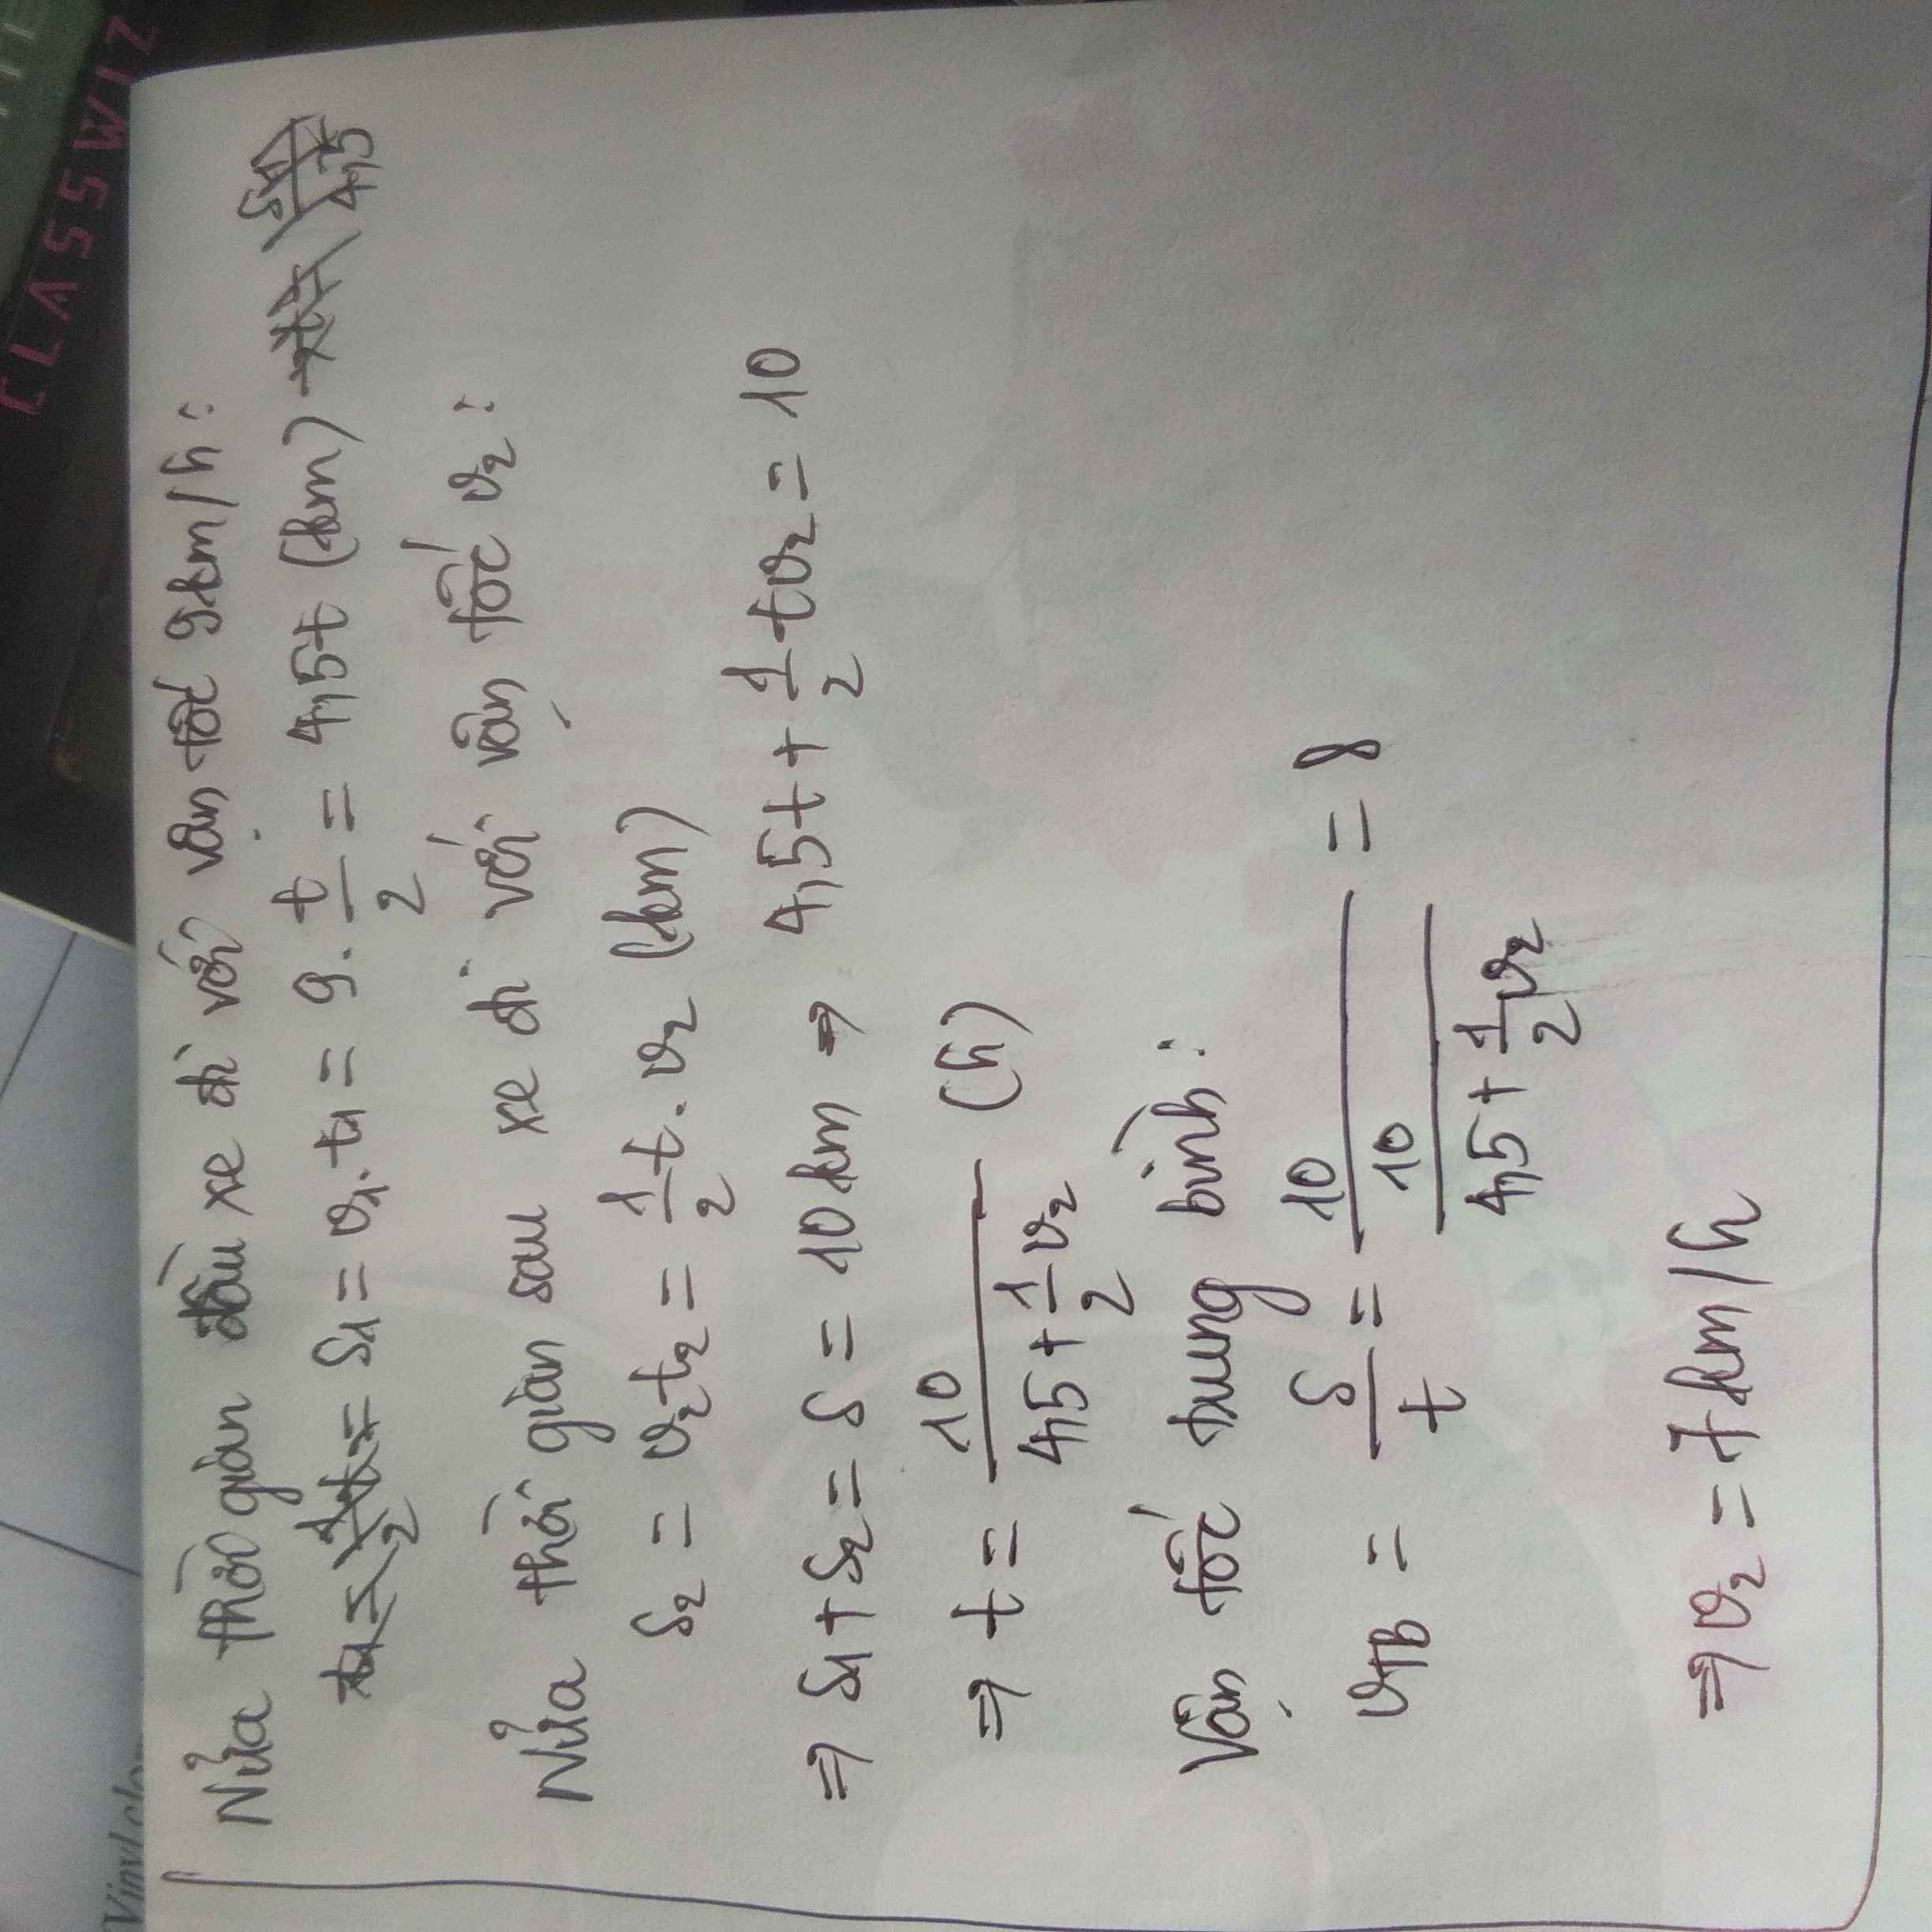 CLASSWIZ
Nửa thời gian đầu xe đi với vận tốc 9km/h:
S1 = v1.t1 = 9. t/2 = 4,5t (km)
Nửa thời gian sau xe đi với vận tốc v2:
S2 = v2t2 = 1/2 t. v2 (km)
⇒ S1 + S2 = S = 10km ⇒ 4,5t + 1/2 tv2 = 10
⇒ t = 10/(4,5 + 1/2 v2) (h)
Vận tốc trung bình:
vTB = S/t = 10/(10/(4,5 + 1/2 v2)) = 8
⇒ v2 = 7km/h